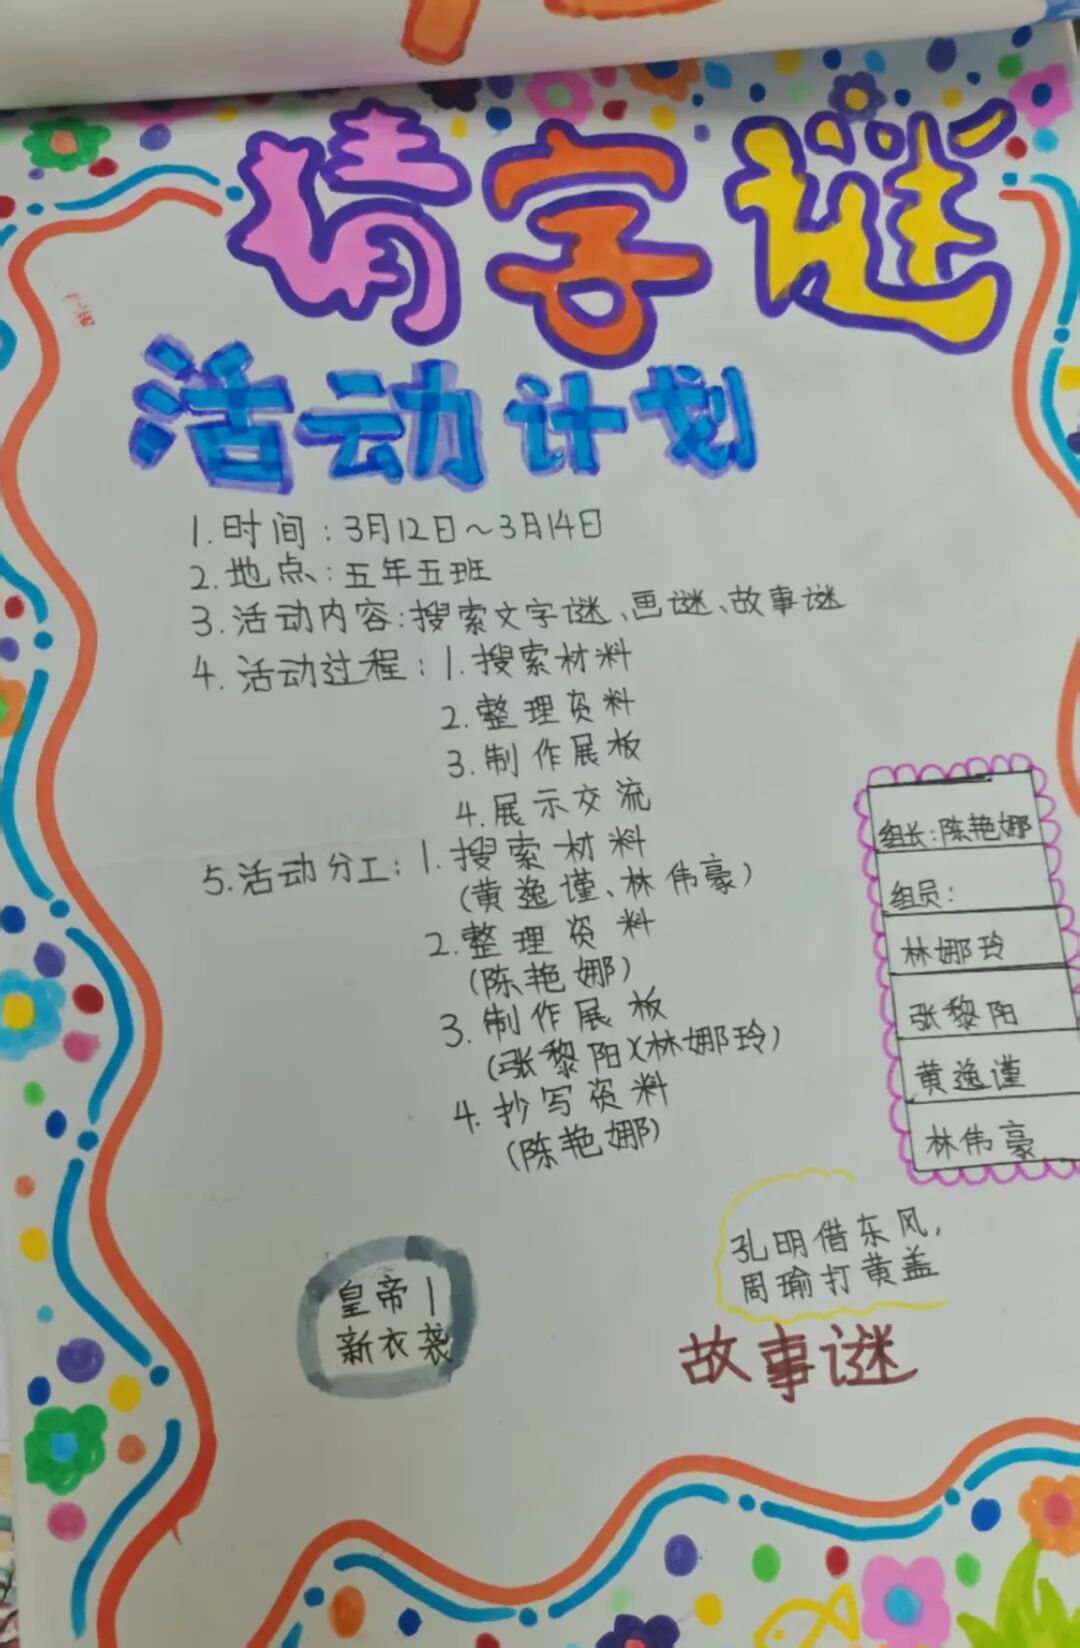 猜字谜
活动计划
1.时间：3月12日～3月14日
2.地点：五年五班
3.活动内容：搜索文字谜、画谜、故事谜
4.活动过程：1.搜索材料
2.整理资料
3.制作展板
4.展示交流
5.活动分工：1.搜索材料
(黄逸谨、林伟豪)
2.整理资料
(陈艳娜)
3.制作展板
(张黎阳)(林娜玲)
4.抄写资料
(陈艳娜)
组长：陈艳娜
组员：
林娜玲
张黎阳
黄逸谨
林伟豪
孔明借东风，
周瑜打黄盖
故事谜
皇帝|
新衣袭